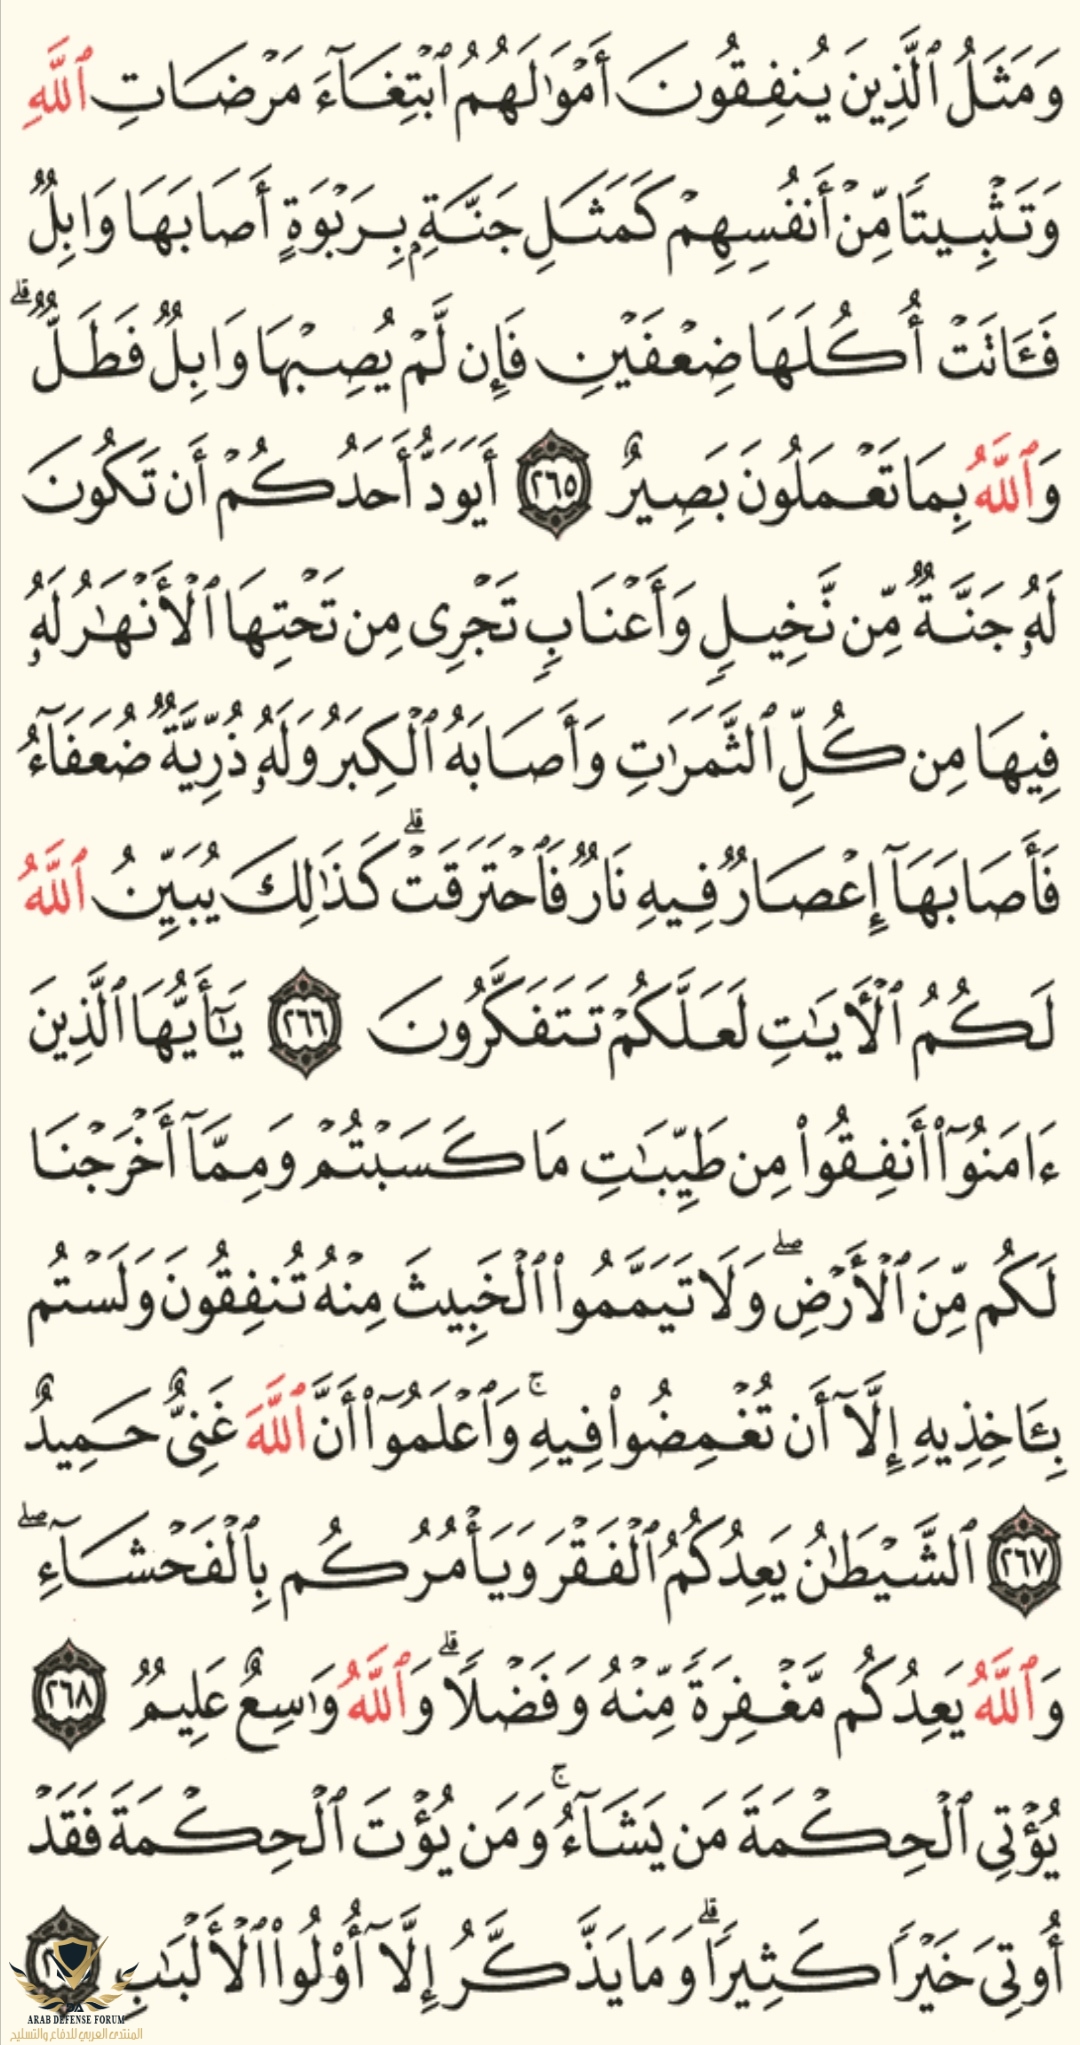 وَمَثَلُ ٱلَّذِينَ يُنفِقُونَ أَمۡوَٰلَهُمُ ٱبۡتِغَآءَ مَرۡضَاتِ ٱللَّهِ
وَتَثۡبِيتٗا مِّنۡ أَنفُسِهِمۡ كَمَثَلِ جَنَّةِۭ بِرَبۡوَةٍ أَصَابَهَا وَابِلٞ
فَـَٔاتَتۡ أُكُلَهَا ضِعۡفَيۡنِ فَإِن لَّمۡ يُصِبۡهَا وَابِلٞ فَطَلّٞۗ
وَٱللَّهُ بِمَا تَعۡمَلُونَ بَصِيرٌ ٢٦٥ أَيَوَدُّ أَحَدُكُمۡ أَن تَكُونَ
لَهُۥ جَنَّةٞ مِّن نَّخِيلٖ وَأَعۡنَابٖ تَجۡرِي مِن تَحۡتِهَا ٱلۡأَنۡهَٰرُ لَهُۥ
فِيهَا مِن كُلِّ ٱلثَّمَرَٰتِ وَأَصَابَهُ ٱلۡكِبَرُ وَلَهُۥ ذُرِّيَّةٞ ضُعَفَآءُ
فَأَصَابَهَآ إِعۡصَارٞ فِيهِ نَارٞ فَٱحۡتَرَقَتۡۗ كَذَٰلِكَ يُبَيِّنُ ٱللَّهُ
لَكُمُ ٱلۡأٓيَٰتِ لَعَلَّكُمۡ تَتَفَكَّرُونَ ٢٦٦ يَٰٓأَيُّهَا ٱلَّذِينَ
ءَامَنُوٓاْ أَنفِقُواْ مِن طَيِّبَٰتِ مَا كَسَبۡتُمۡ وَمِمَّآ أَخۡرَجۡنَا
لَكُم مِّنَ ٱلۡأَرۡضِۖ وَلَا تَيَمَّمُواْ ٱلۡخَبِيثَ مِنۡهُ تُنفِقُونَ وَلَسۡتُم
بِـَٔاخِذِيهِ إِلَّآ أَن تُغۡمِضُواْ فِيهِۚ وَٱعۡلَمُوٓاْ أَنَّ ٱللَّهَ غَنِيٌّ حَمِيدٌ
٢٦٧ ٱلشَّيۡطَٰنُ يَعِدُكُمُ ٱلۡفَقۡرَ وَيَأۡمُرُكُم بِٱلۡفَحۡشَآءِۖ
وَٱللَّهُ يَعِدُكُم مَّغۡفِرَةٗ مِّنۡهُ وَفَضۡلٗاۗ وَٱللَّهُ وَٰسِعٌ عَلِيمٞ ٢٦٨
يُؤۡتِي ٱلۡحِكۡمَةَ مَن يَشَآءُۚ وَمَن يُؤۡتَ ٱلۡحِكۡمَةَ فَقَدۡ
أُوتِيَ خَيۡرٗا كَثِيرٗاۗ وَمَا يَذَّكَّرُ إِلَّآ أُوْلُواْ ٱلۡأَلۡبَٰبِ
ARAB DEFENSE FORUM
المنتدى العربي للدفاع والتسليح